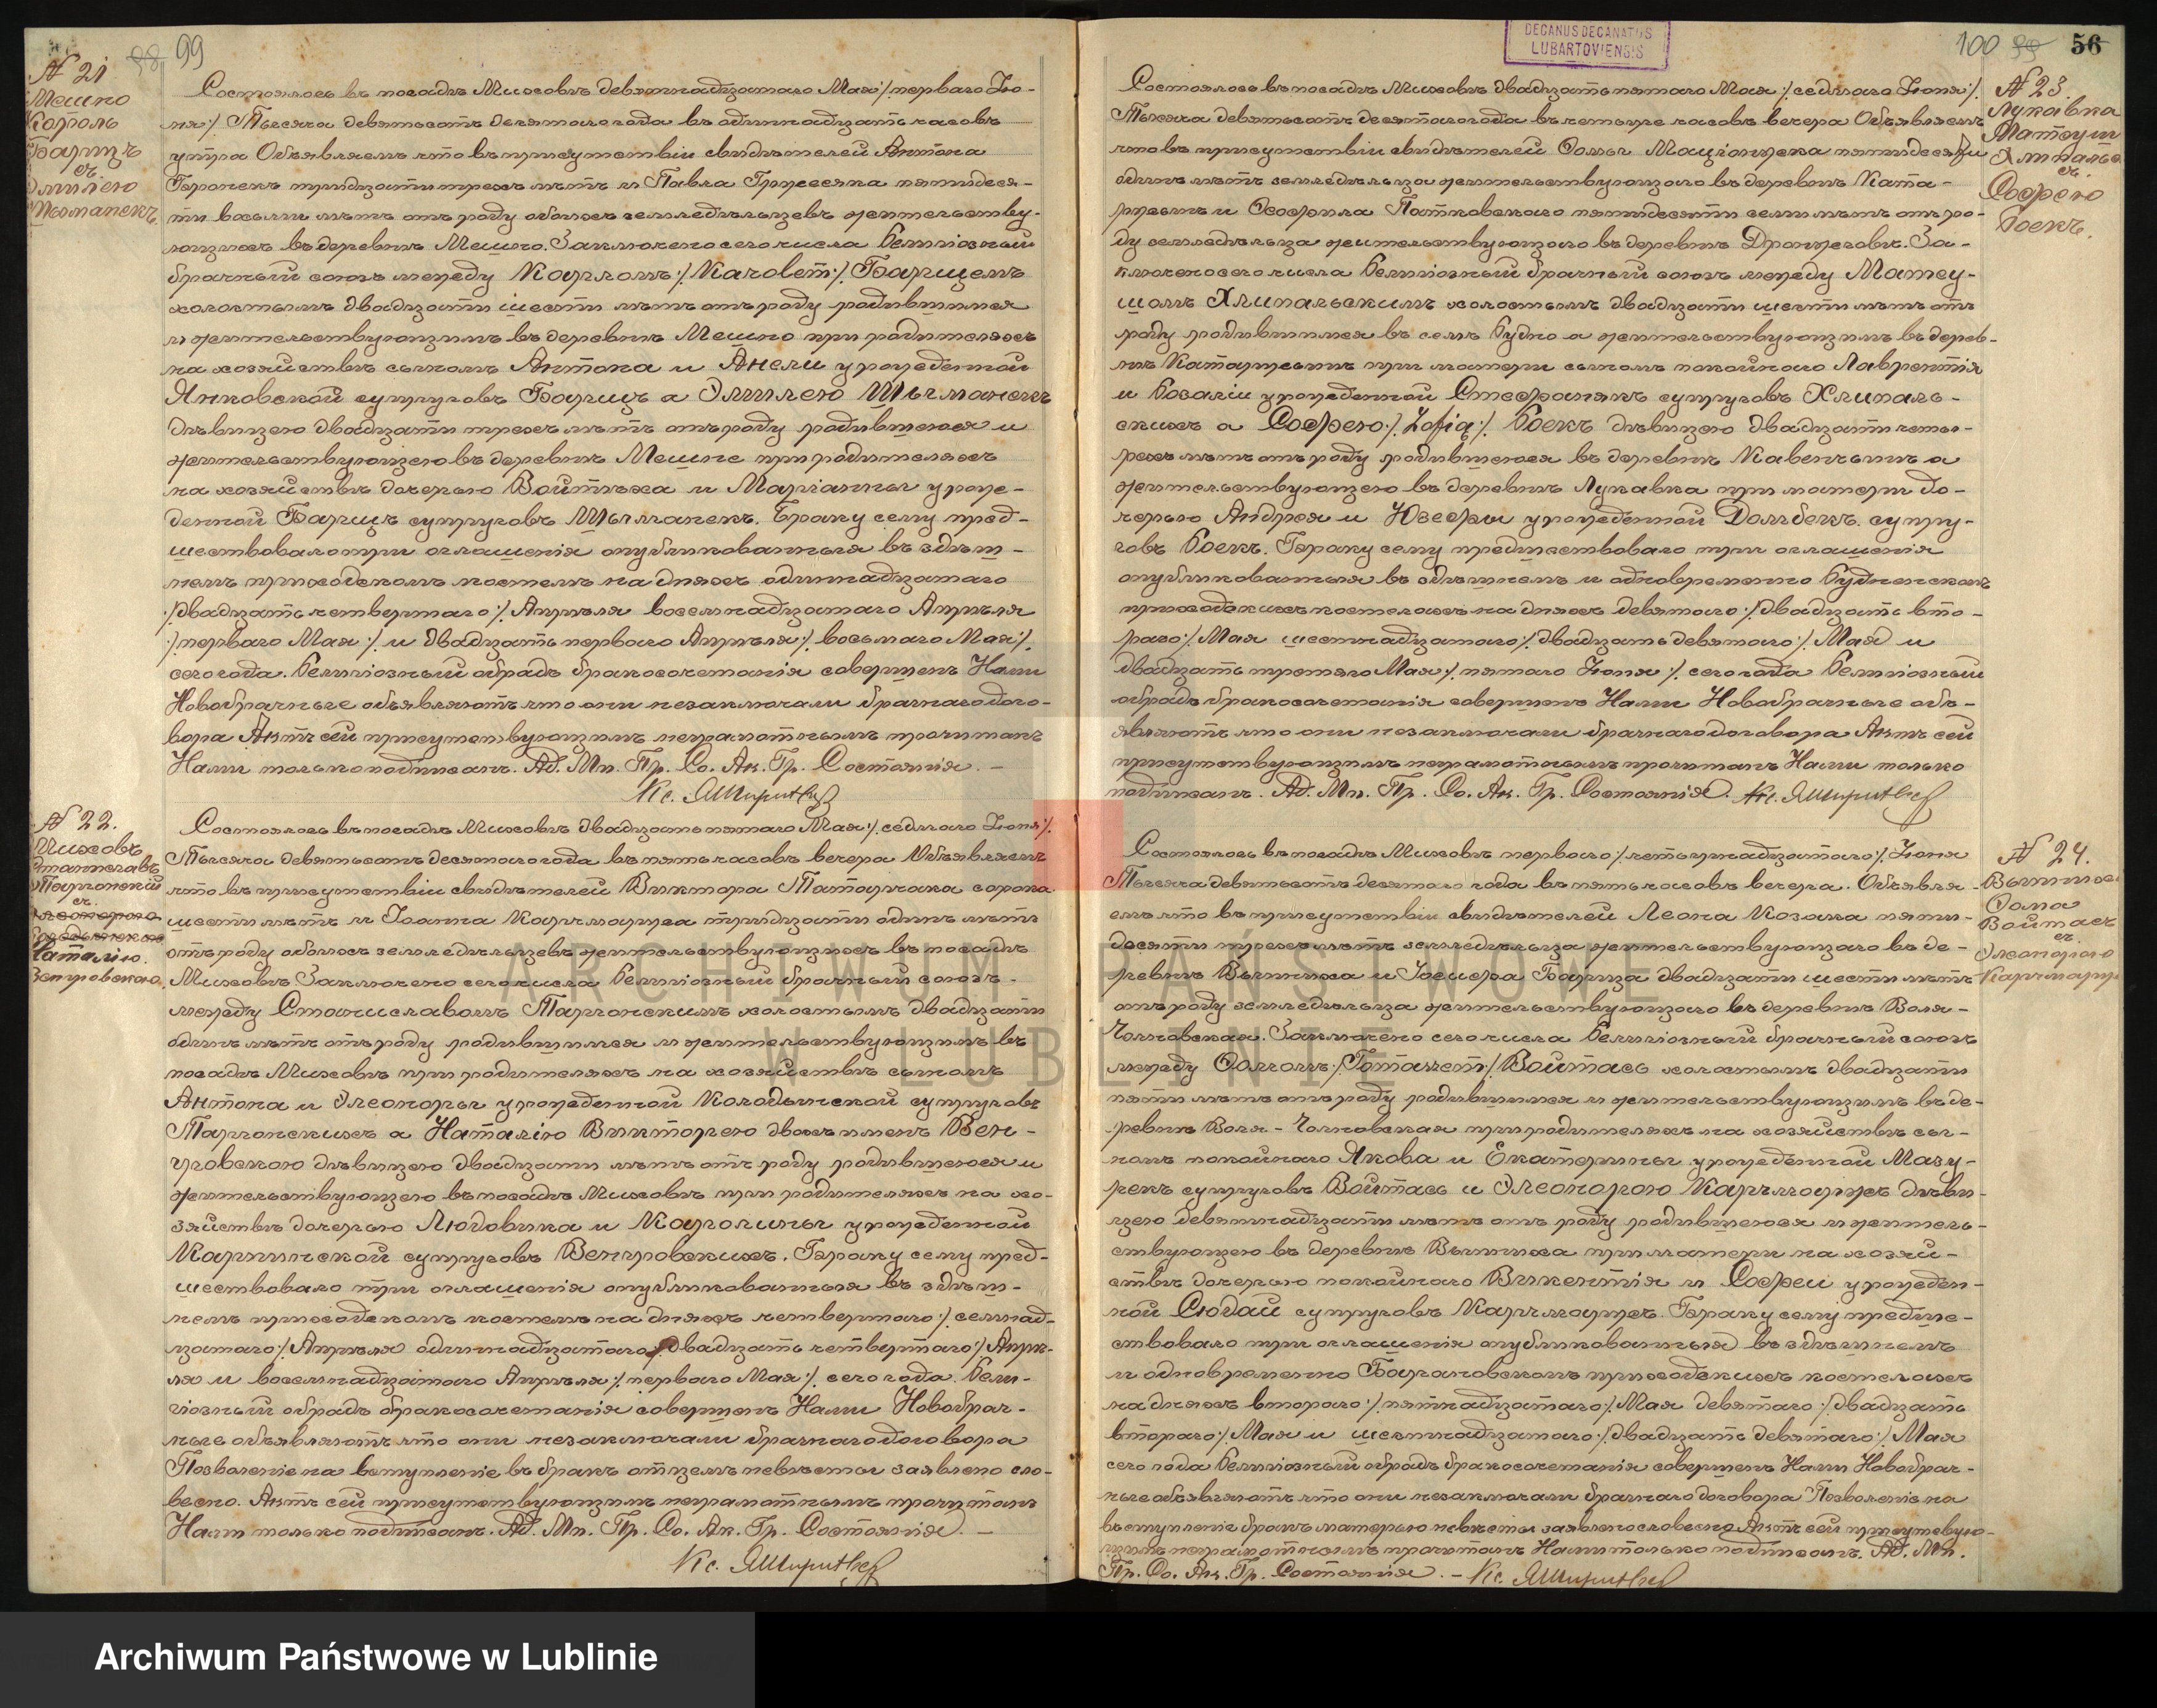 99
№ 21
Мешно
Кароль
Барицъ
съ
Эмилiею
Шыманекъ
Состоялось въ посадѣ Миховѣ девятнадцатаго Мая /: перваго Iю-
ня :/ Тысяча девятьсотъ десятаго года въ одиннадцать часовъ
утра Объявляемъ что въ присутствiи свидѣтелей Антона
тридцати трехъ лѣтъ и Павла пятидеся-
ти восьми лѣтъ отъ роду обоихъ земледѣльцевъ жительству-
ющихъ въ деревнѣ Мешно. Заключено сего числа Религiозный
брачный союзъ между Карломъ /: Karolem :/ Барицемъ
холостымъ двадцати шести лѣтъ отъ роду родившимся
и жительствующимъ въ деревнѣ Мешно при родителяхъ
на хозяйствѣ сыномъ Антона и Анели урожденной
Янковской супруговъ Барицъ а Эмилiею Шыманекъ
дѣвицею двадцати трехъ лѣтъ отъ роду родившеюся и
жительствующею въ деревнѣ Мешне при родителяхъ
на хозяйствѣ дочерью Войтѣха и Марiанны урож-
денной Барицъ супруговъ Шыманекъ. Браку сему пред-
шествовало три оглашенiя опубликованныя въ здѣш-
немъ приходскомъ костелѣ на дняхъ одиннадцатаго
/: двадцать четвертаго :/ Апрѣля восемнадцатаго Апрѣля
/: перваго Мая :/ и двадцать перваго Апрѣля /: восьмаго Мая :/
сего года. Религiозный обрядъ бракосочетанiя совершенъ Нами
Новобрачные объявляютъ что они незаключали брачнаго дого-
вора Актъ сей присутствующимъ неграмотнымъ прочитанъ
Нами только подписанъ. Ад. Мп. Пр. Со. Ак. Гр. Состоянiя. —
Кс.
№ 22.
Миховъ
Станиславъ
Тарчонскiй
съ
Наталiю
Состоялось въ посадѣ Миховѣ двадцать пятаго Мая /: седмаго Iюня :/
Тысяча девятьсотъ десятаго года въ пять часовъ вечера Объявляемъ
что въ присутствiи свидѣтелей Виктора Татарчака сорока
шести лѣтъ и Iоанна Карчмаржа тридцати одинъ лѣтъ
отъ роду обоихъ земледѣльцевъ жительствующихъ въ посадѣ
Миховѣ Заключено сего числа Религiозный брачный союзъ -
между Станиславомъ Тарчонскимъ холостымъ двадцати
одинъ лѣтъ отъ роду родившимся и жительствующимъ въ
посадѣ Миховѣ при родителяхъ на хозяйствѣ сыномъ
Антона и Элеоноры урожденной Колодынской супруговъ
Тарчонскихъ а Наталiю Викторею двохъ именъ Вен-
гровскою дѣвицею двадцати лѣтъ отъ роду родившеюся и
жительствующею въ посадѣ Миховѣ при родителяхъ на хо-
зяйствѣ дочерью Людовика и Каролины урожденной
Карпинской супруговъ Венгровскихъ. Браку сему пред-
шествовало три оглашенiя опубликованныя въ здѣш-
немъ приходскомъ костелѣ на дняхъ четвертаго /: семнад-
цатаго :/ Апрѣля одиннадцатаго /: двадцать четвертаго :/ Апрѣ-
ля и восемнадцатаго Апрѣля /: перваго Мая :/ сего года. Рели-
гiозный обрядъ бракосочетанiя совершенъ Нами Новобрач-
ные объявляютъ что они незаключали брачнаго договора
Позволенiе на вступленiе въ бракъ отцемъ невѣсты заявлено сло-
весно. Актъ сей присутствующимъ неграмотнымъ прочитанъ
Нами только подписанъ. Ад. Мп. Пр. Со. Ак. Гр. Состоянiя. —
Кс.
DECANUS DECANATUS
LUBARTOVIENSIS
100 56
№ 23.
Лукавка
Матеушъ
съ
Софiею
Боекъ.
Состоялось въ посадѣ Миховѣ двадцать пятаго Мая /: седмаго Iюня :/
Тысяча девятьсотъ десятаго года въ четыре часовъ вечера Объявляемъ
что въ присутствiи свидѣтелей Фомы пятидесяти
одинъ лѣтъ земледѣльца жительствующаго въ деревнѣ Ката-
ржынъ и Феофила Патковскаго пятидесяти семи лѣтъ отъ ро-
ду земледѣльца жительствующаго въ деревнѣ За-
ключено сего числа Религiозный брачный союзъ между Матеу-
шомъ Хлипальскимъ холостымъ двадцати шести лѣтъ отъ
роду родившимся въ селѣ Рудно а жительствующимъ въ дерев-
нѣ Катаржынъ при матери сыномъ покойнаго Лаврентiя
и Розалiи урожденной Стефанякъ супруговъ Хлипаль-
скихъ а Софiею /: Zofią :/ Боекъ дѣвицею двадцати четы-
рехъ лѣтъ отъ роду родившеюся въ деревнѣ Кавенчинъ а
жительствующею въ деревнѣ Лукавка при матери до-
черью Андрея и Юзефы урожденной Домбекъ супру-
говъ Боекъ. Браку сему предшествовало три оглашенiя
опубликованныя въ здѣшнемъ и одновременно Рудненскомъ
приходскихъ костелахъ на дняхъ девятаго /: двадцать вто-
раго :/ Мая шестнадцатаго /: двадцать девятаго :/ Мая и
двадцать третяго Мая /: пятаго Iюня :/ сего года Религiозный
обрядъ бракосочетанiя совершенъ Нами Новобрачные объ-
являютъ что они незаключали брачнаго договора Актъ сей
присутствующимъ неграмотнымъ прочитанъ Нами только
подписанъ. Ад. Мп. Пр. Со. Ак. Гр. Состоянiя. Кс.
№ 24.
Фома
Войтасъ
съ
Элеонорою
Состоялось въ посадѣ Миховѣ перваго /: четырнадцатаго :/ Iюня
Тысяча девятьсотъ десятаго года въ пять часовъ вечера. Объявля-
емъ что въ присутствiи свидѣтелей Леона Козака пяти-
десяти трехъ лѣтъ земледѣльца жительствующаго въ де-
ревнѣ и Iосифа Барица двадцати шести лѣтъ
отъ роду земледѣльца жительствующаго въ деревнѣ Воля-
Чолновская. Заключено сего числа Религiозный брачный союзъ
между Фомомъ /: Tomaszem :/ Войтась холостымъ двадцати
пяти лѣтъ отъ роду родившимся и жительствующимъ въ де-
ревнѣ Воля-Чолновская при родителяхъ на хозяйствѣ сы-
номъ покойнаго Якова и Екатерины урожденной Мазу-
рекъ супруговъ Войтась и Элеонорою Карчмаржъ дѣви-
цею девятнадцати лѣтъ отъ роду родившеюся и житель-
ствующею въ деревнѣ при матери на хозяй-
ствѣ дочерью покойнаго Викентiя и Софеи урожден-
ной Сюдай супруговъ Карчмаржъ. Браку сему предше-
ствовало три оглашенiя опубликованныя въ здѣшнемъ
и одновременно Барановскомъ приходскихъ костелахъ
на дняхъ втораго /: пятнадцатаго :/ Мая девятаго /: двадцать
втораго :/ Мая и шестнадцатаго /: двадцать девятаго :/ Мая
сего года Религiозный обрядъ бракосочетанiя совершенъ Нами Новобрач-
ные объявляютъ что они незаключали брачнаго договора Позволенiе на
вступленiе бракъ матерью невѣсты заявлено словесно Актъ сей присутствую-
щимъ неграмотнымъ прочитанъ Нами только подписанъ. Ад. Мп.
Пр. Со. Ак. Гр. Состоянiя. — Кс.
ARCHIWUM PAŃSTWOWE
W LUBLINIE
Archiwum Państwowe w Lublinie